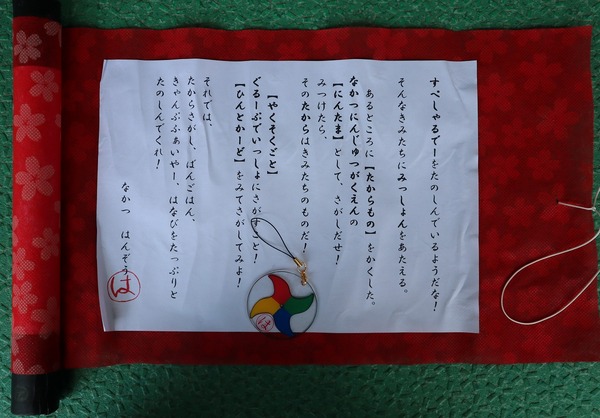 すぺしゃるでーをたのしんでいるようだな!
そんなきみたちにみっしょんをあたえる。
あるところに【たからもの】をかくした。
なかつにんじゅつがくえんの
【にんたま】として、さがしだせ!
みつけたら、
そのたからはきみたちのものだ!
【やくそくごと】
ぐるーぷでいっしょにさがすこと!
【ひんとかーど】をみてさがしてみよ!
それでは、
たからさがし、ばんごはん、
きゃんぷふぁいやー、はなびをたっぷりと
たのしんでくれ!
なかつ はんぞう
は